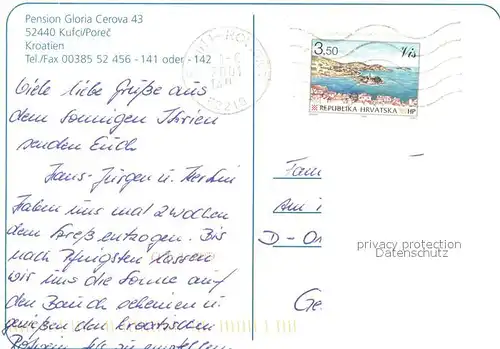 Pension Gloria Cerova 43
52440 Kufci/Poreč
Kroatien
Tel./Fax 00385 52 456 - 141 oder -142
Viele liebe Grüße aus
dem sonnigen Istrien
senden Euch
Hans-Jürgen u.
Haben uns mal 2 Wochen
dem Streß entzogen. Bis
nach Pfingsten lassen
wir uns die Sonne auf
den Bauch scheinen u.
genießen den kroatischen
3,50
Vis
REPUBLIKA HRVATSKA
HP
2001
52210
Fam
Am
D - On
privacy protection
Datenschutz
Ge